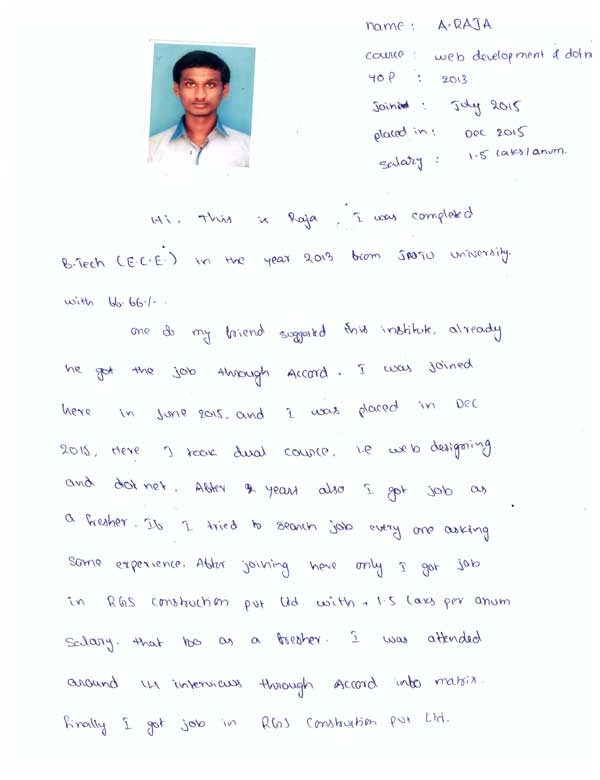 name : A.RAJA
cource : web development & dotn
YOP : 2013
Joined : July 2015
placed in : Dec 2015
Salary : 1.5 Laks/anum.
Hi, This is Raja. I was completed
B.Tech (E.C.E.) in the year 2013 from JNTU University.
with 66.66%.
one of my friend suggested this institute, already
he got the job through Accord. I was joined
here in June 2015, and I was placed in Dec
2015, Here I took dual cource. i.e web designing
and dot net. After 2 years also I got job as
a fresher. If I tried to search job every one asking
some experience. After joining here only I got job
in RGS construction pvt Ltd. with 1.5 Laks per anum
Salary. that too as a fresher. I was attended
around 14 interviews through Accord info matrix.
finally I got job in RGS construction pvt Ltd.